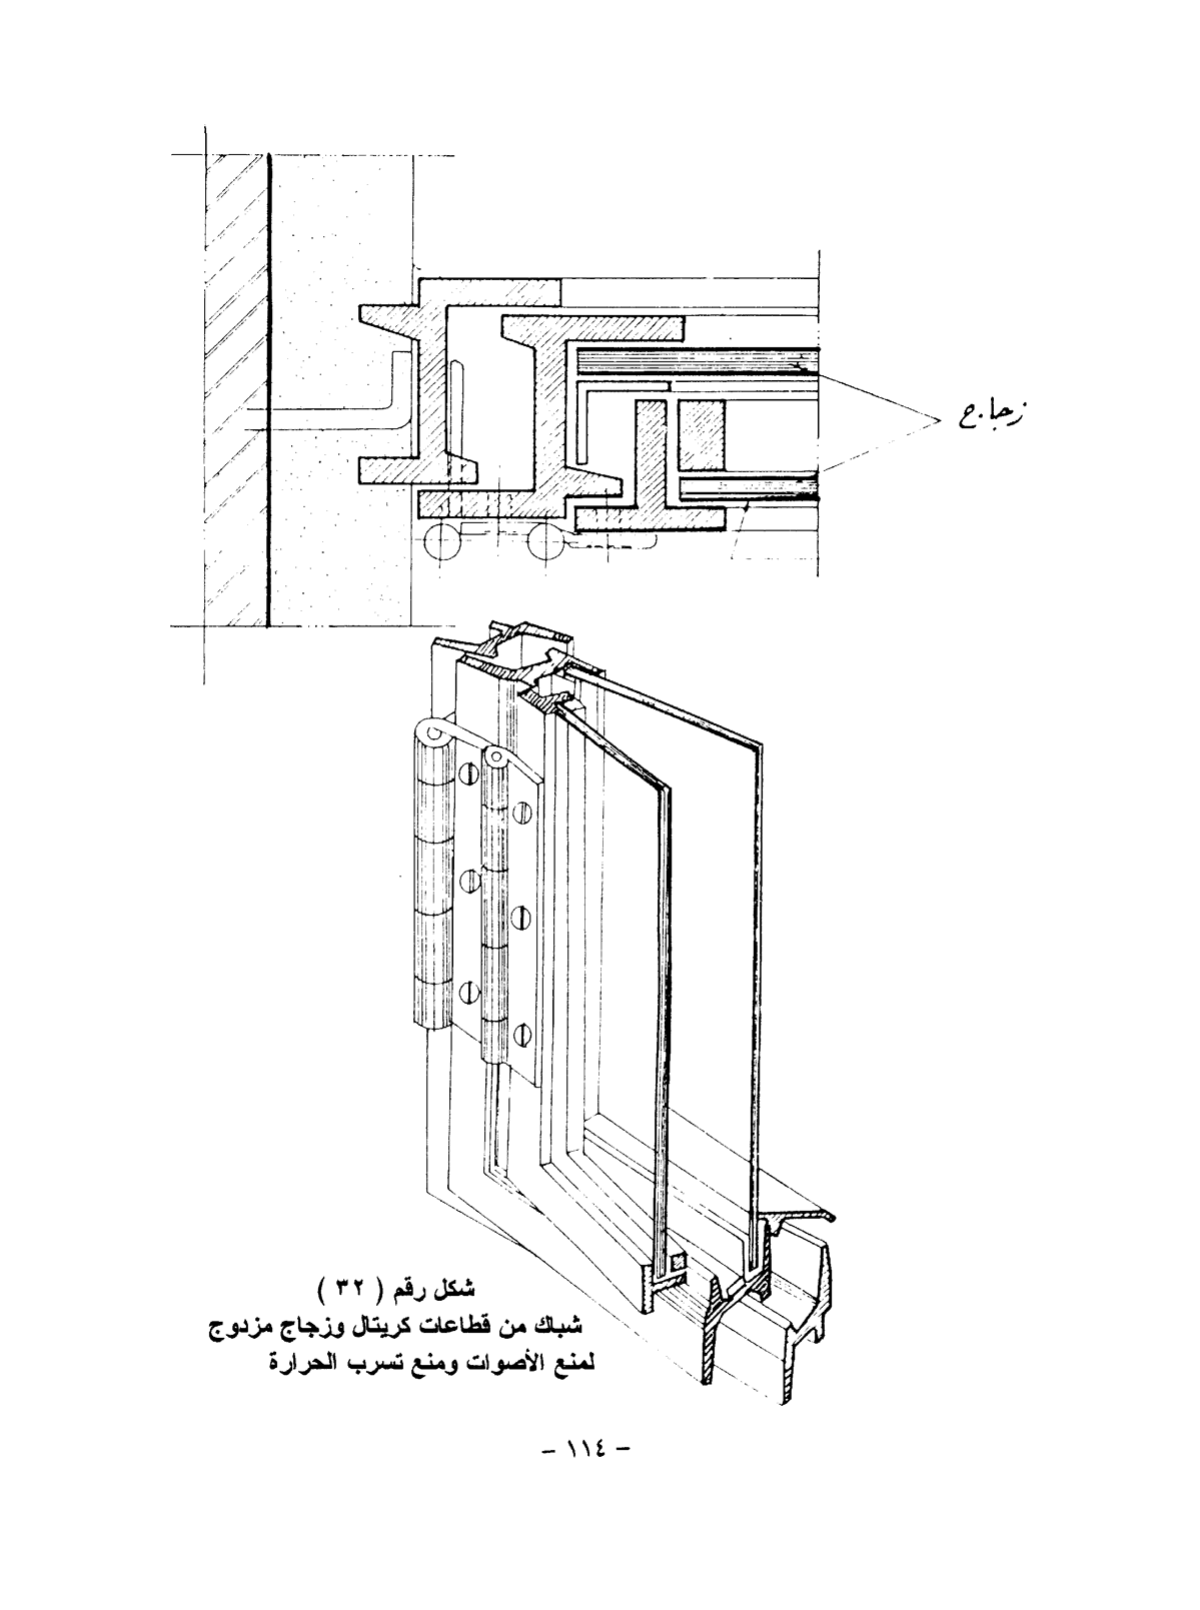 زجاج
شكل رقم ( ٣٢ )
شباك من قطاعات كريتال وزجاج مزدوج
لمنع الأصوات ومنع تسرب الحرارة
- ١١٤ -